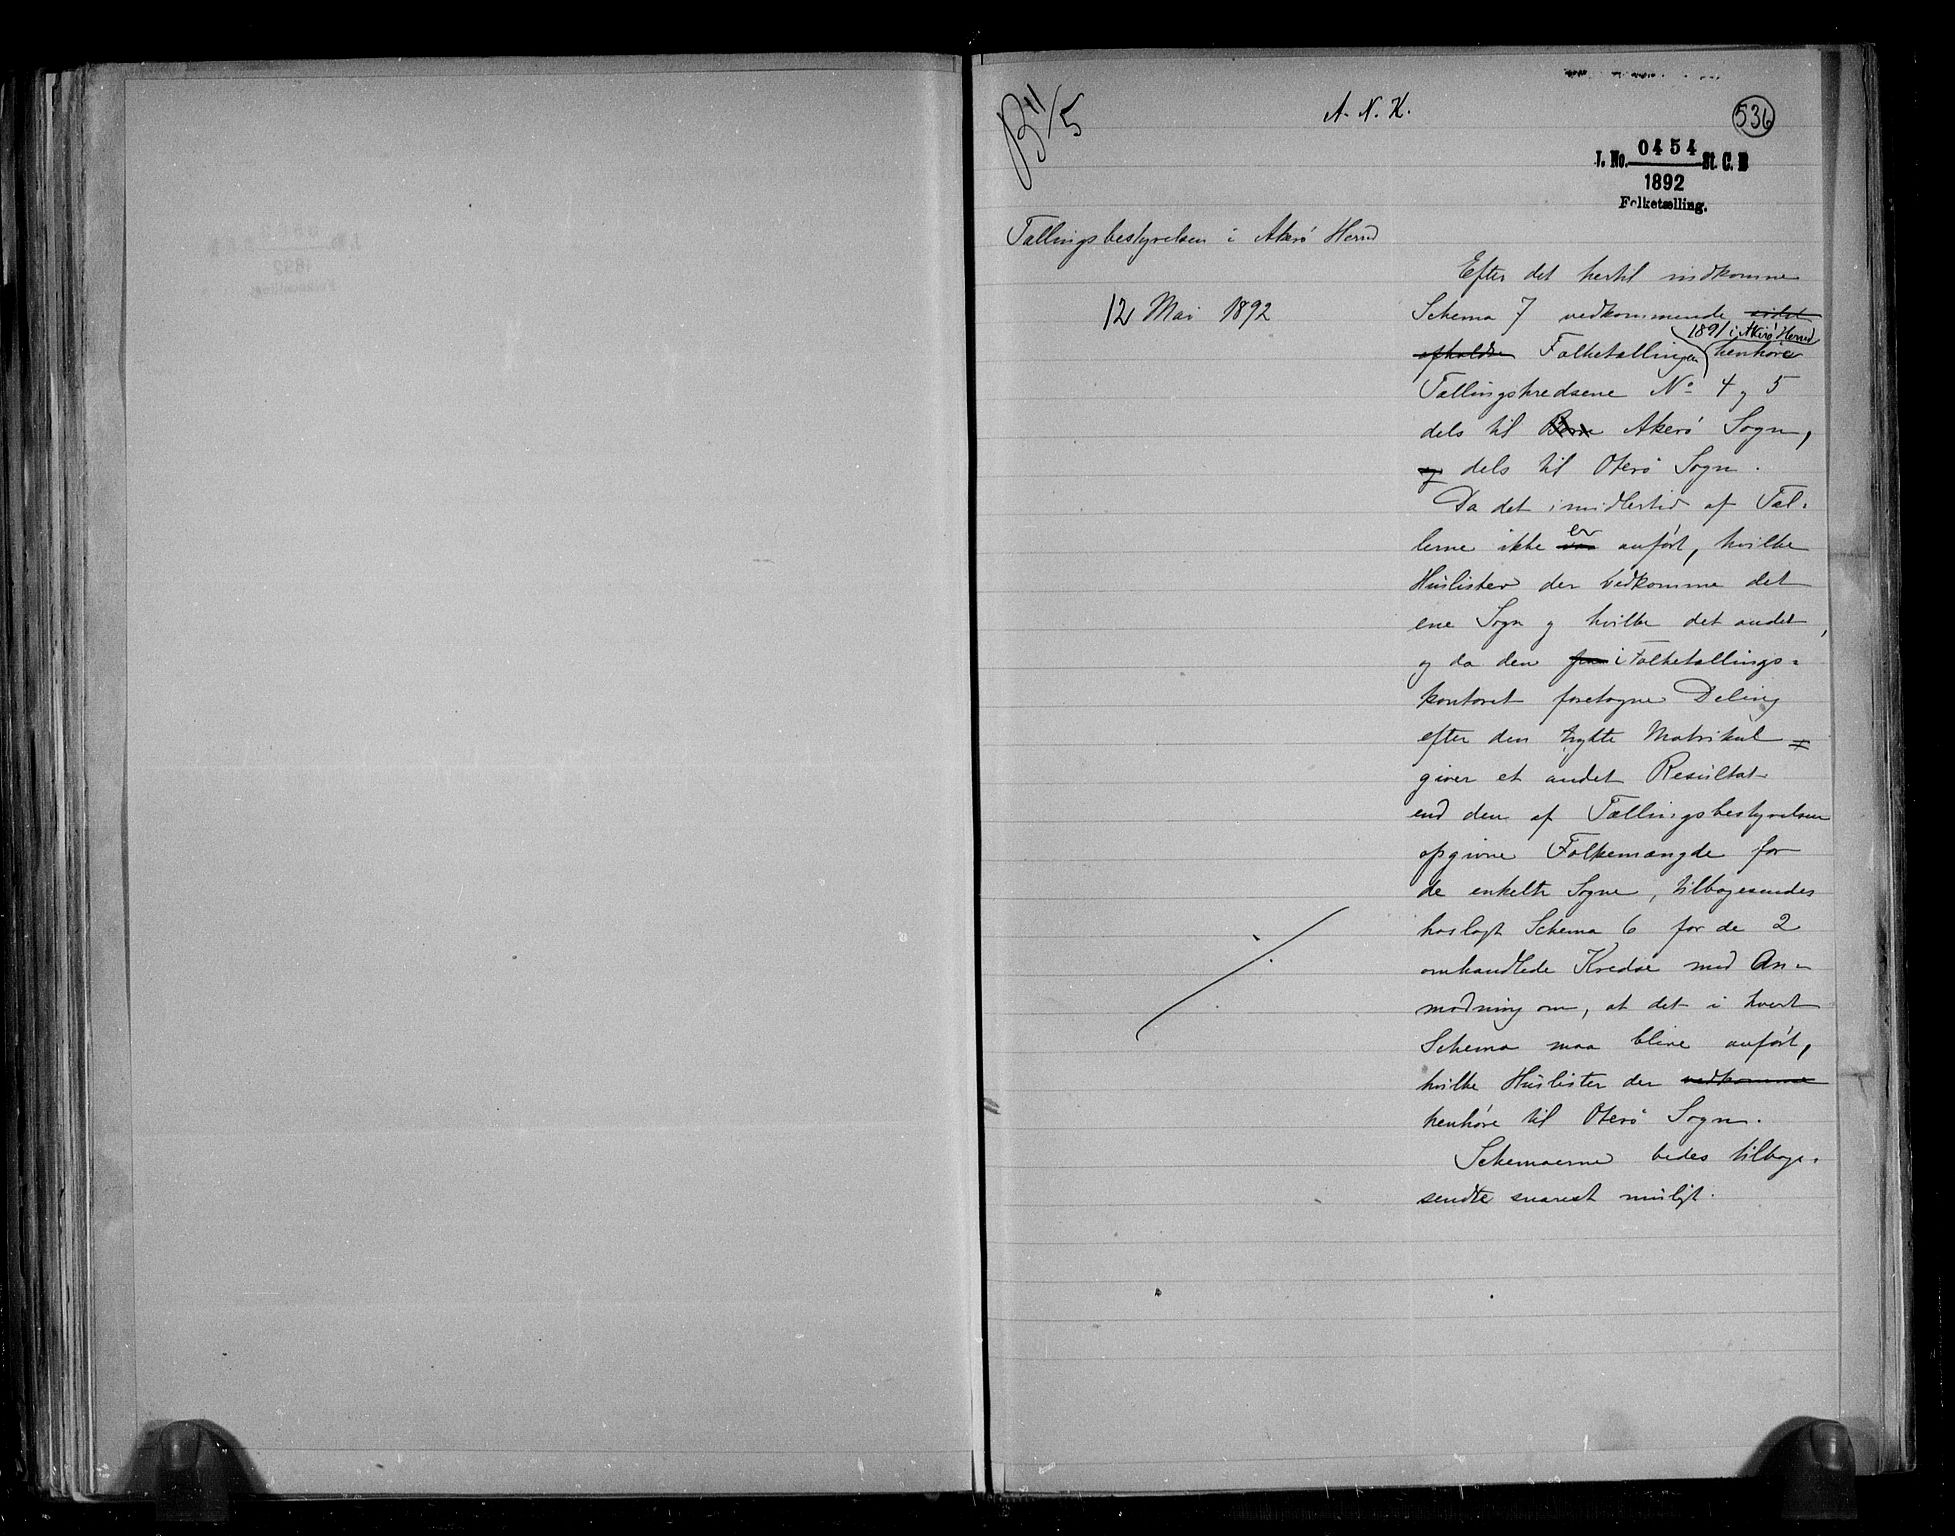 B 11/5
A. N. K.
536
J. No. 0454 St. C. B
1892
Folketælling.
Tællingsbestyrelsen i Akerø Herred
12 Mai 1892
Efter det hertil indkomne
Schema 7 vedkommende sidst
afholdte Folketællingen 1891 i Akerø Herred henhører
Tællingskredsene No 4 og 5
dels til Akerø Sogn,
og dels til Oterø Sogn.
Da det imidlertid af Tæl-
lerne ikke var er anført, hvilke
Huslister der vedkomme det
ene Sogn og hvilke det andet,
og da den fra i Folketællings-
kontoret foretagne Deling
efter den trykte Matrikul
giver et andet Resultat
end den af Tællingsbestyrelsen
opgivne Folkemængde for
de enkelte Sogne, tilbagesendes
hoslagt Schema 6 for de 2
omhandlede Kredse med An-
modning om, at det i hvert
Schema maa blive anført,
hvilke Huslister der vedkomme
henhøre til Oterø Sogn.
Schemaerne bedes tilbage-
sendte snarest muligt.